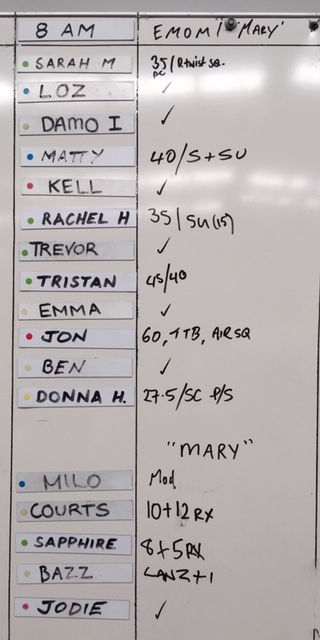 8 AM EMOM "MARY"
SARAH M 35/R twist sq.
PC
LOZ ✓
DAMO I ✓
MATTY 40/S+SU
KELL ✓
RACHEL H 35/SU(15)
TREVOR ✓
TRISTAN 45/40
EMMA ✓
JON 60, TTB, AIR SQ
BEN ✓
DONNA H. 27.5/SC P/S
"MARY"
MILO Mod
COURTS 10+12 RX
SAPPHIRE 8+5 RX
BAZZ
JODIE ✓